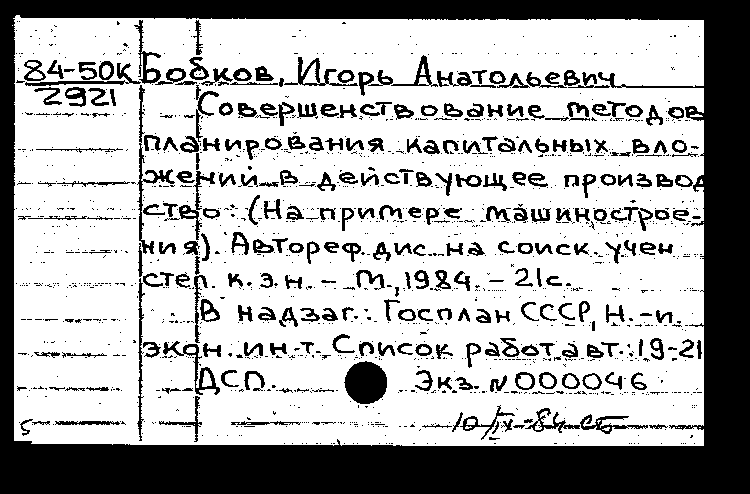 84-50К Бобков, Игорь Анатольевич
2921
Совершенствование методов
планирования капитальных вло-
жений в действующее производ
ство: (На примере машинострое-
ния). Автореф. дис. на соиск. учен
степ. к. э. н. - М., 1984. - 21 с.
В надзаг.: Госплан СССР, Н.-и.
экон. ин-т. Список работ авт.: 19-21
ДСП. Экз. N 000046
10/IX-84
5